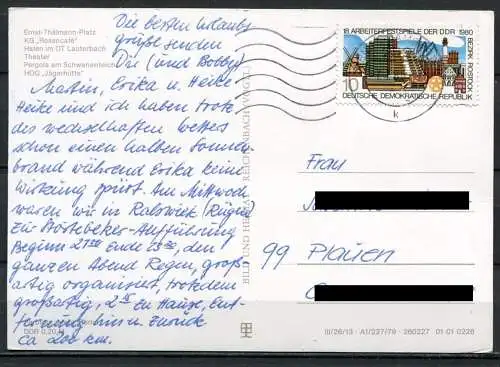 Ernst-Thälmann-Platz
KG „Rosencafé“
Hafen im OT Lauterbach
Theater
Pergola am Schwanenteich
HOG „Jägerhütte“
Die besten Urlaubs
grüße senden
Dir (und Bobby)
Martin, Erika u. Heike
Heike und ich haben trotz
des wechselhaften Wetters
schon einen halben Sonnen-
brand während Erika keine
Wirkung spürt. Am Mittwoch
waren wir in Ralswiek (Rügen)
zur Störtebeker-Aufführung
Beginn 21°° Ende 23³⁰, den
ganzen Abend Regen, groß-
artig organisiert, trotzdem
großartig, zu Hause, Ent-
fernung hin u. zurück
ca 200 km.
DDR 0,20 M
BILD UND HEIMAT REICHENBACH (VOGTL)
18. ARBEITERFESTSPIELE DER DDR 1980
BEZIRK ROSTOCK
10
DEUTSCHE DEMOKRATISCHE REPUBLIK
k
Frau
99 Plauen
III/26/13 · A1/237/79 · 260227 01 01 0228